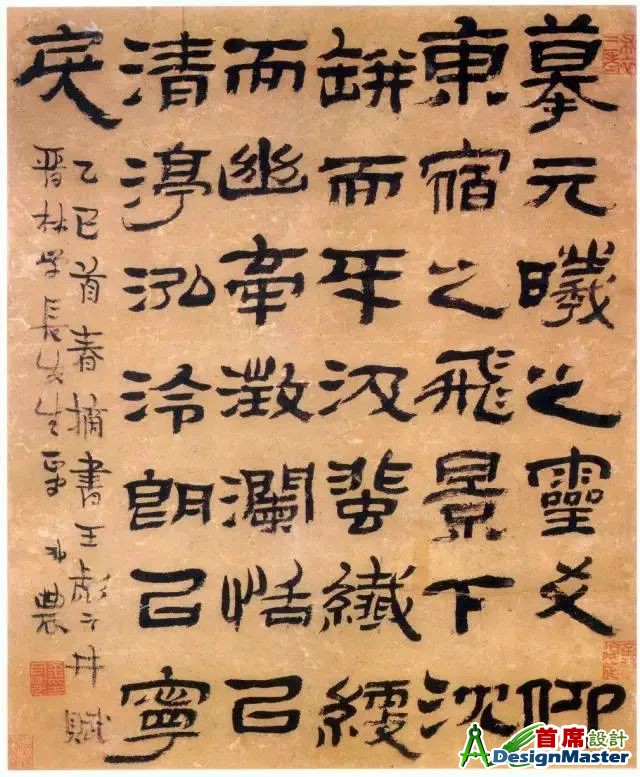 摹元曦之靈爻仰
東宿之飛景下沈
缾而牙汲蜚纖綆
而幽牽澂瀾恬己
清渟泓泠朗己寧
矣
乙巳首春摘書王彪之井賦
晋林學長先生正 農
首席設計
DesignMaster